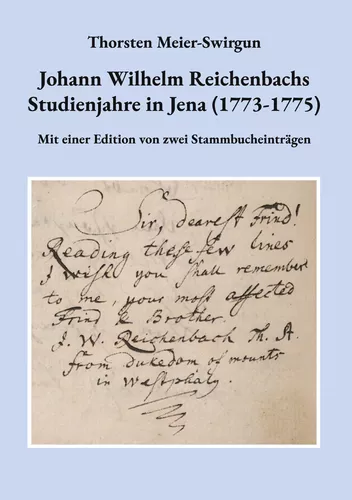 Thorsten Meier-Swirgun
Johann Wilhelm Reichenbachs
Studienjahre in Jena (1773-1775)
Mit einer Edition von zwei Stammbucheinträgen
Sir, dearest Frind!
Reading these few lines
I wish you shall remember
to me, your most affected
Frind & Brother.
J. W. Reichenbach Th. St.
from dukedom of mounts
in Westphaly.